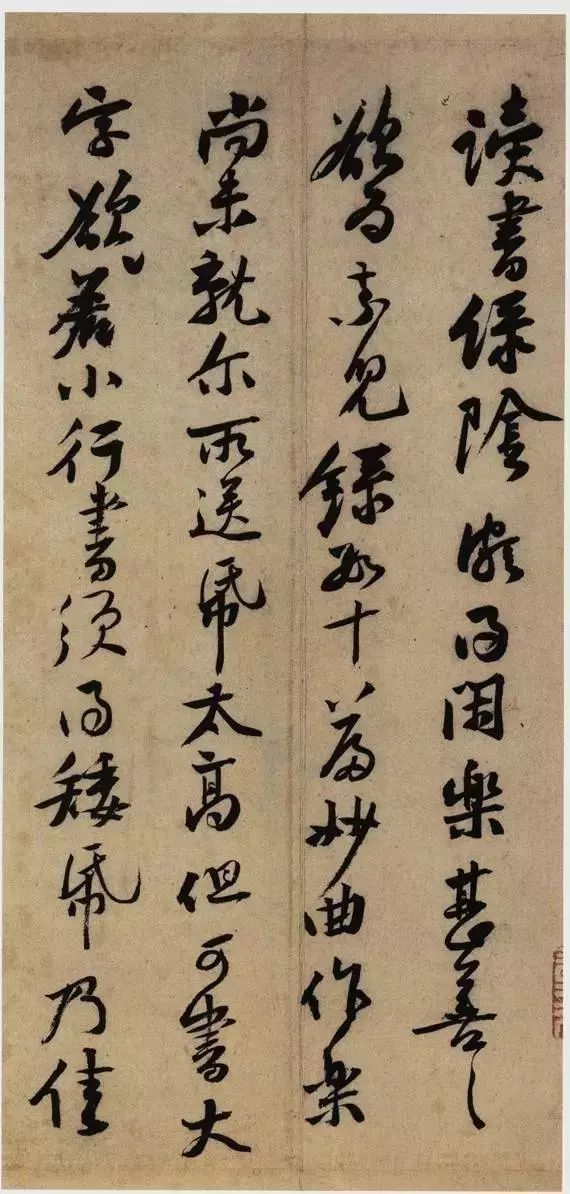 讀書綠陰頗得閑樂甚善〻
欲為素兒錄數十篇妙曲作樂
尚未就尔所送帋太高但可書大
字欲若小行書須得矮帋乃佳